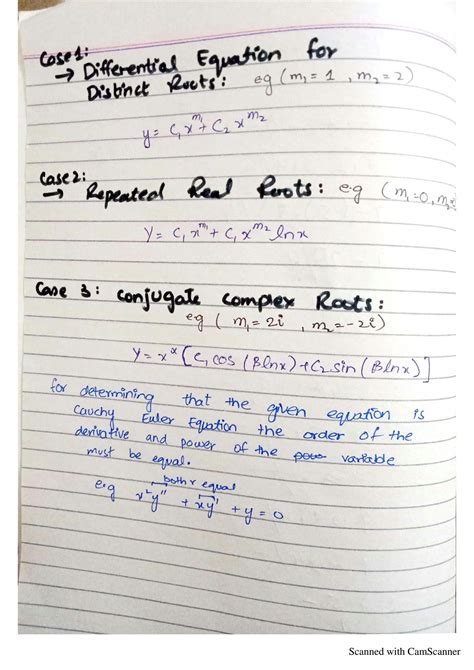 Case 1:
→ Differential Equation for
Distinct Roots: eg (m₁ = 1 , m₂ = 2)
y = C₁x^m₁ + C₂ x^m₂
Case 2:
→ Repeated Real Roots: e.g (m₁=0, m₂
y = C₁ x^m₁ + C₁ x^m₂ ln x
Case 3: conjugate complex Roots:
eg ( m₁ = 2i , m₂ = -2i)
y = x^α [C₁ cos (βlnx) + C₂ sin (βlnx)]
for determining that the given equation is
Cauchy Euler Equation the order of the
derivative and power of the variable
must be equal.
both r equal
e.g x²y'' + xy' + y = 0
Scanned with CamScanner